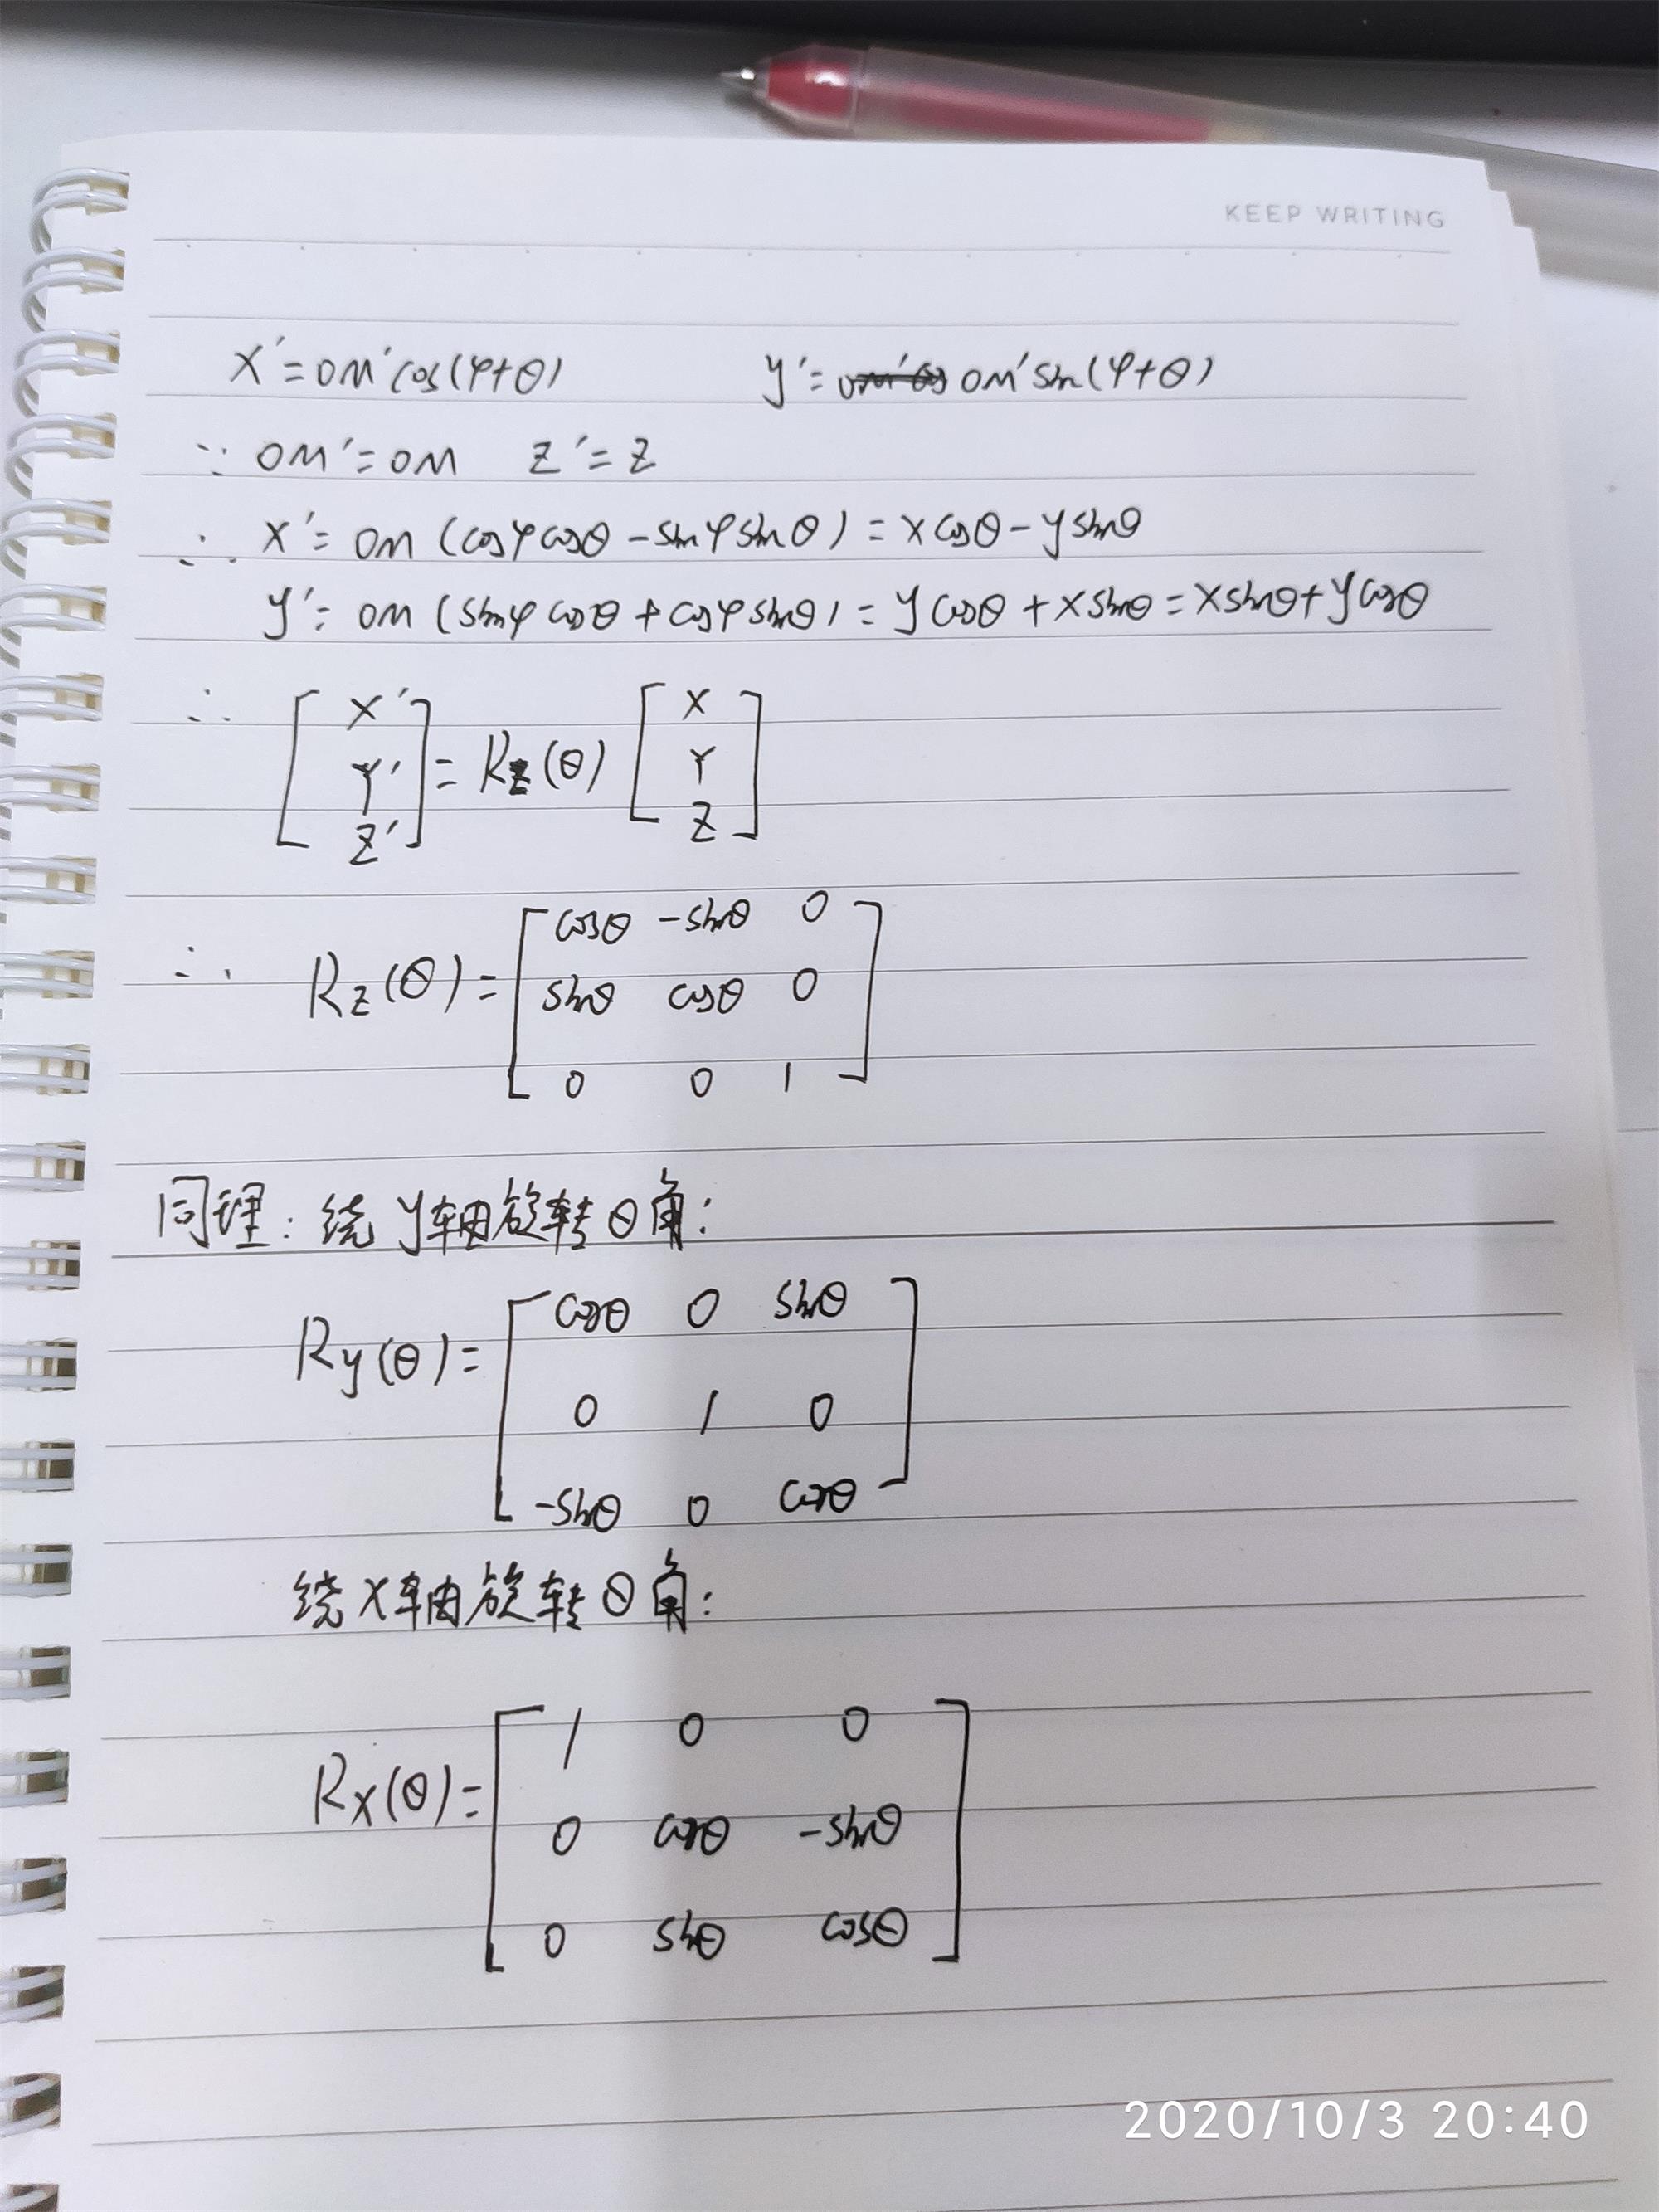 KEEP WRITING
X′=OM′cos(φ+θ) y′= OM′sin(φ+θ)
∵ OM′=OM Z′=Z
∴ X′= OM (cosφcosθ-sinφsinθ) = xcosθ-ysinθ
y′= OM (sinφcosθ+cosφsinθ) = ycosθ+xsinθ=xsinθ+ycosθ
∴ [X′ Y′ Z′] = Rz(θ) [X Y Z]
∴ Rz(θ)= [cosθ -sinθ 0
sinθ cosθ 0
0 0 1]
同理: 绕y轴旋转θ角:
Ry(θ)= [cosθ 0 sinθ
0 1 0
-sinθ 0 cosθ]
绕X轴旋转θ角:
Rx(θ)= [1 0 0
0 cosθ -sinθ
0 sinθ cosθ]
2020/10/3 20:40